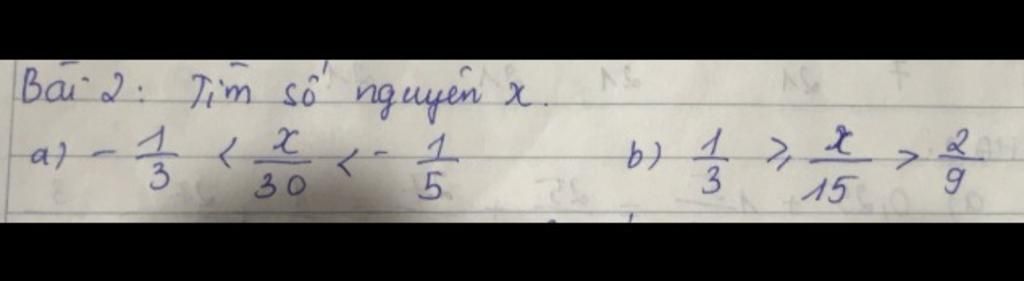 Bài 2: Tìm số nguyên x.
a) - 1/3 < x/30 < - 1/5 b) 1/3 ⩾ x/15 > 2/9